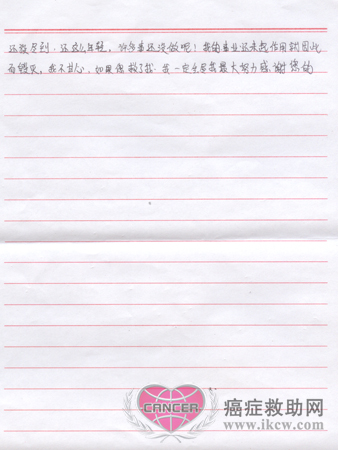 还没尽到，还这么年轻，许多事还没做呢！我的事业还未起作用就因此
而毁灭，我不甘心，如果您救了我，我一定会尽我最大努力感谢您的
CANCER
癌症救助网
www.ikcw.com